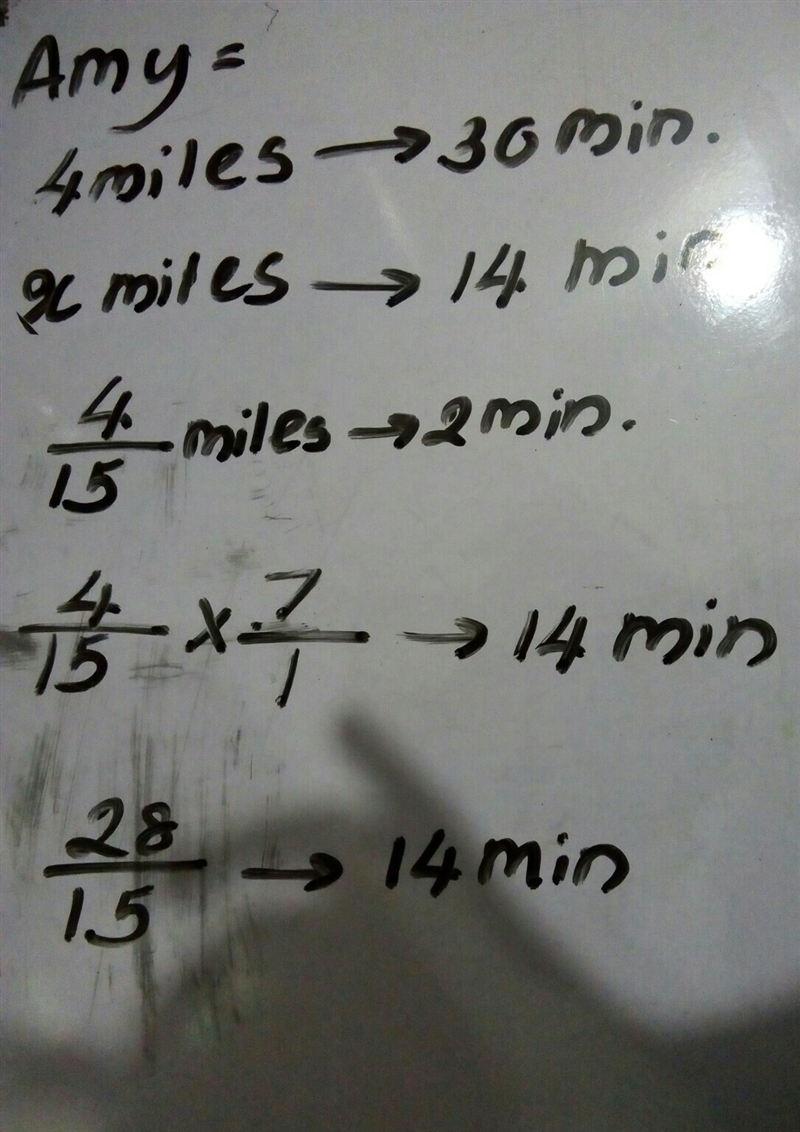 Amy =
4 miles → 30 min.
x miles → 14 min
4/15 miles → 2 min.
4/15 x 7/1 → 14 min
28/15 → 14 min